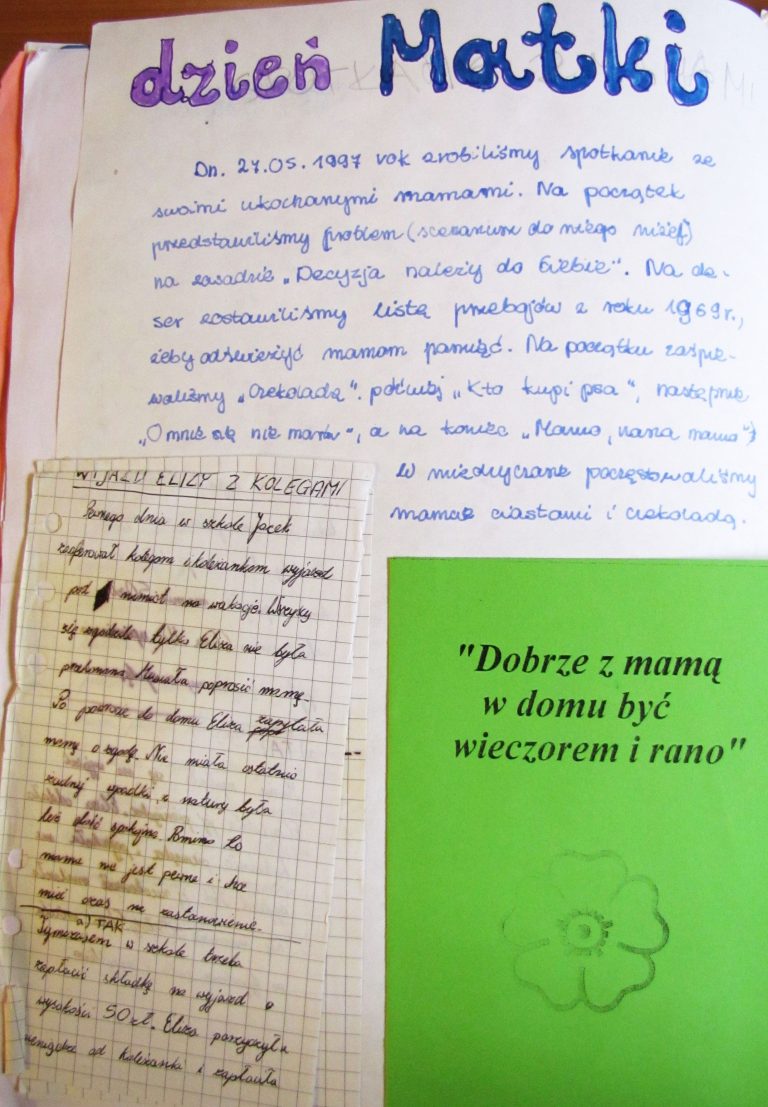 dzień Matki
Dn. 27.05.1997 rok zrobiliśmy spotkanie ze
swoimi ukochanymi mamami. Na początek
przedstawiliśmy problem (scenariusz do niego niżej)
na zasadzie „Decyzja należy do Ciebie". Na de-
ser zostawiliśmy listę przebojów z roku 1969r.,
żeby odświeżyć mamom pamięć. Na początku zaśpie-
waliśmy „Czekoladę". później „Kto kupi psa", następnie
„O mnie się nie martw", a na koniec „Mamo, nasza mamo";
W międzyczasie poczęstowaliśmy
mamusie ciastami i czekoladą.
WYJAZD ELIZY Z KOLEGAMI
Pewnego dnia w szkole Jacek
zaoferował kolegom i koleżankom wyjazd
pod namiot na wakacje. Wszyscy
się zgodzili tylko Eliza nie była
przekonana. Musiała poprosić mamę.
Po powrocie do domu Eliza zapytała
mamę o zgodę. Nie miała ostatnio
żadnej wpadki, z natury była
też dość spokojna. Pomimo to
mama nie jest pewna i chce
mieć czas na zastanowienie.
a) TAK
Tymczasem w szkole trzeba
zapłacić składkę na wyjazd o
wysokości 50 zł. Eliza pożyczyła
pieniądze od koleżanki i zapłaciła
"Dobrze z mamą
w domu być
wieczorem i rano"